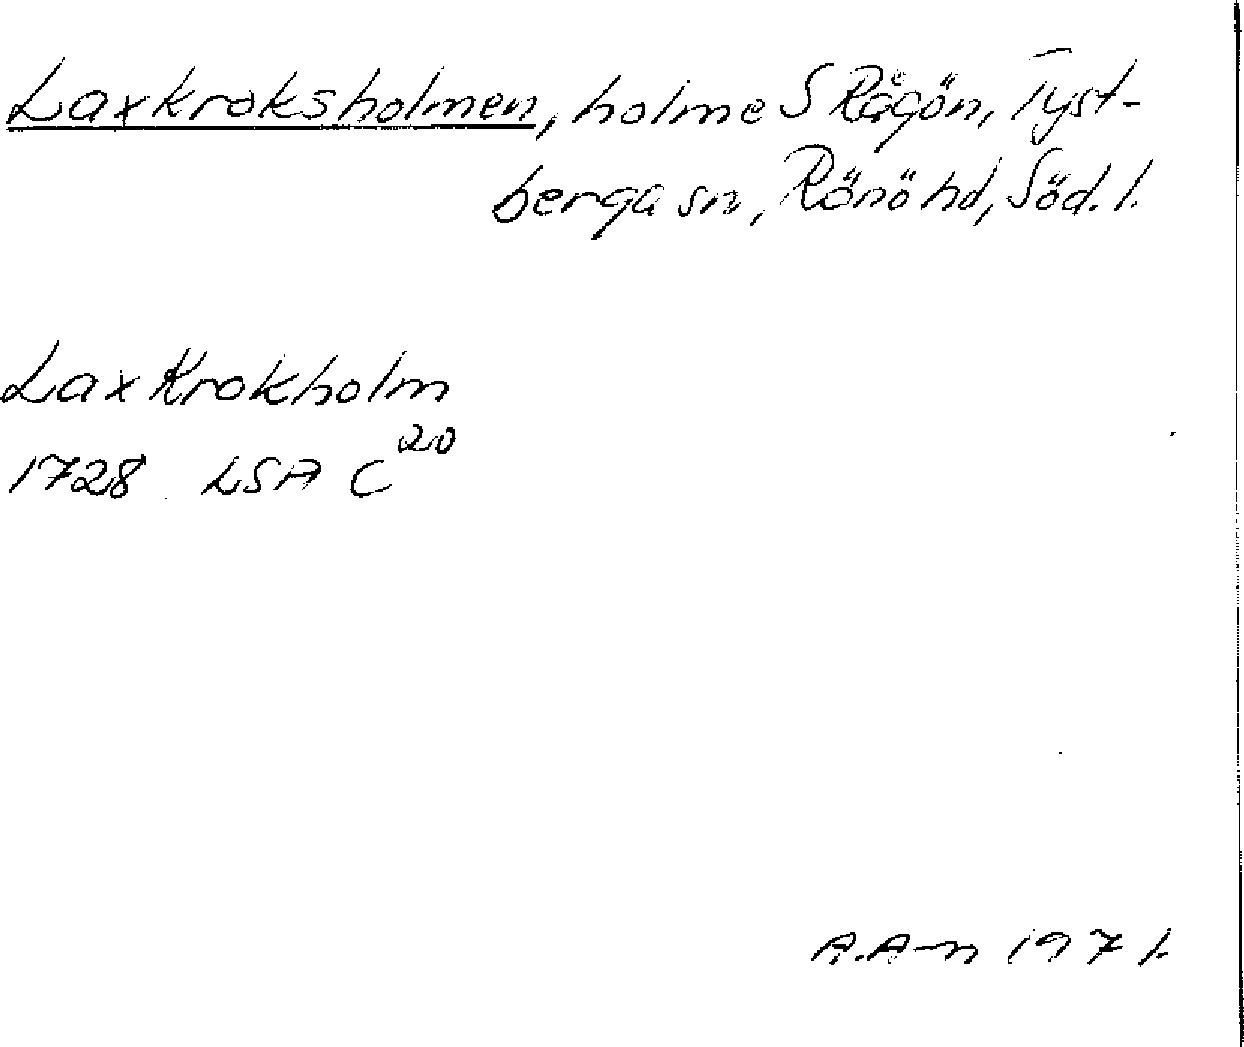 Laxkroksholmen, holme S Rågön, Tyst-
berga sn, Rönö hd, Söd. l.
Lax Krokholm
1728 LSA C 20
A.A-n 1971.